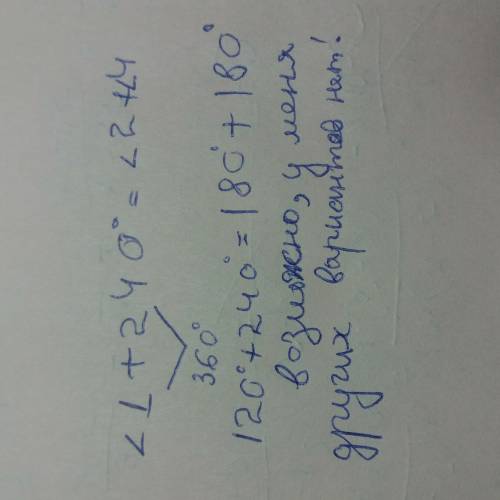 <1+240°=<2+<4
360°
120°+240°=180°+180°
возможно, у меня
других вариантов нет!